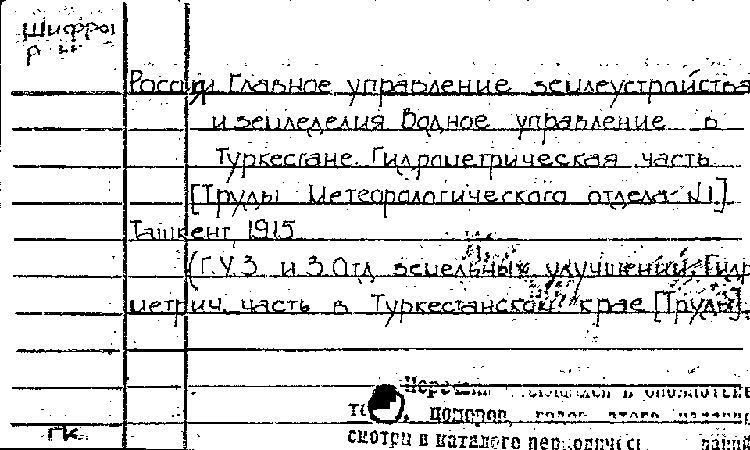 Шифры
р н
России Главное управление землеустройства
и земледелия Водное управление в
Туркестане. Гидрометрическая часть
[Труды Метеорологического отдела №1]
Ташкент, 1915
(Г.У.З. и З. Отд земельных улучшений. Гидр
метрич. часть в Туркестанском крае [Труды].
номеров, годов этого издания
гк.
смотри в каталоге